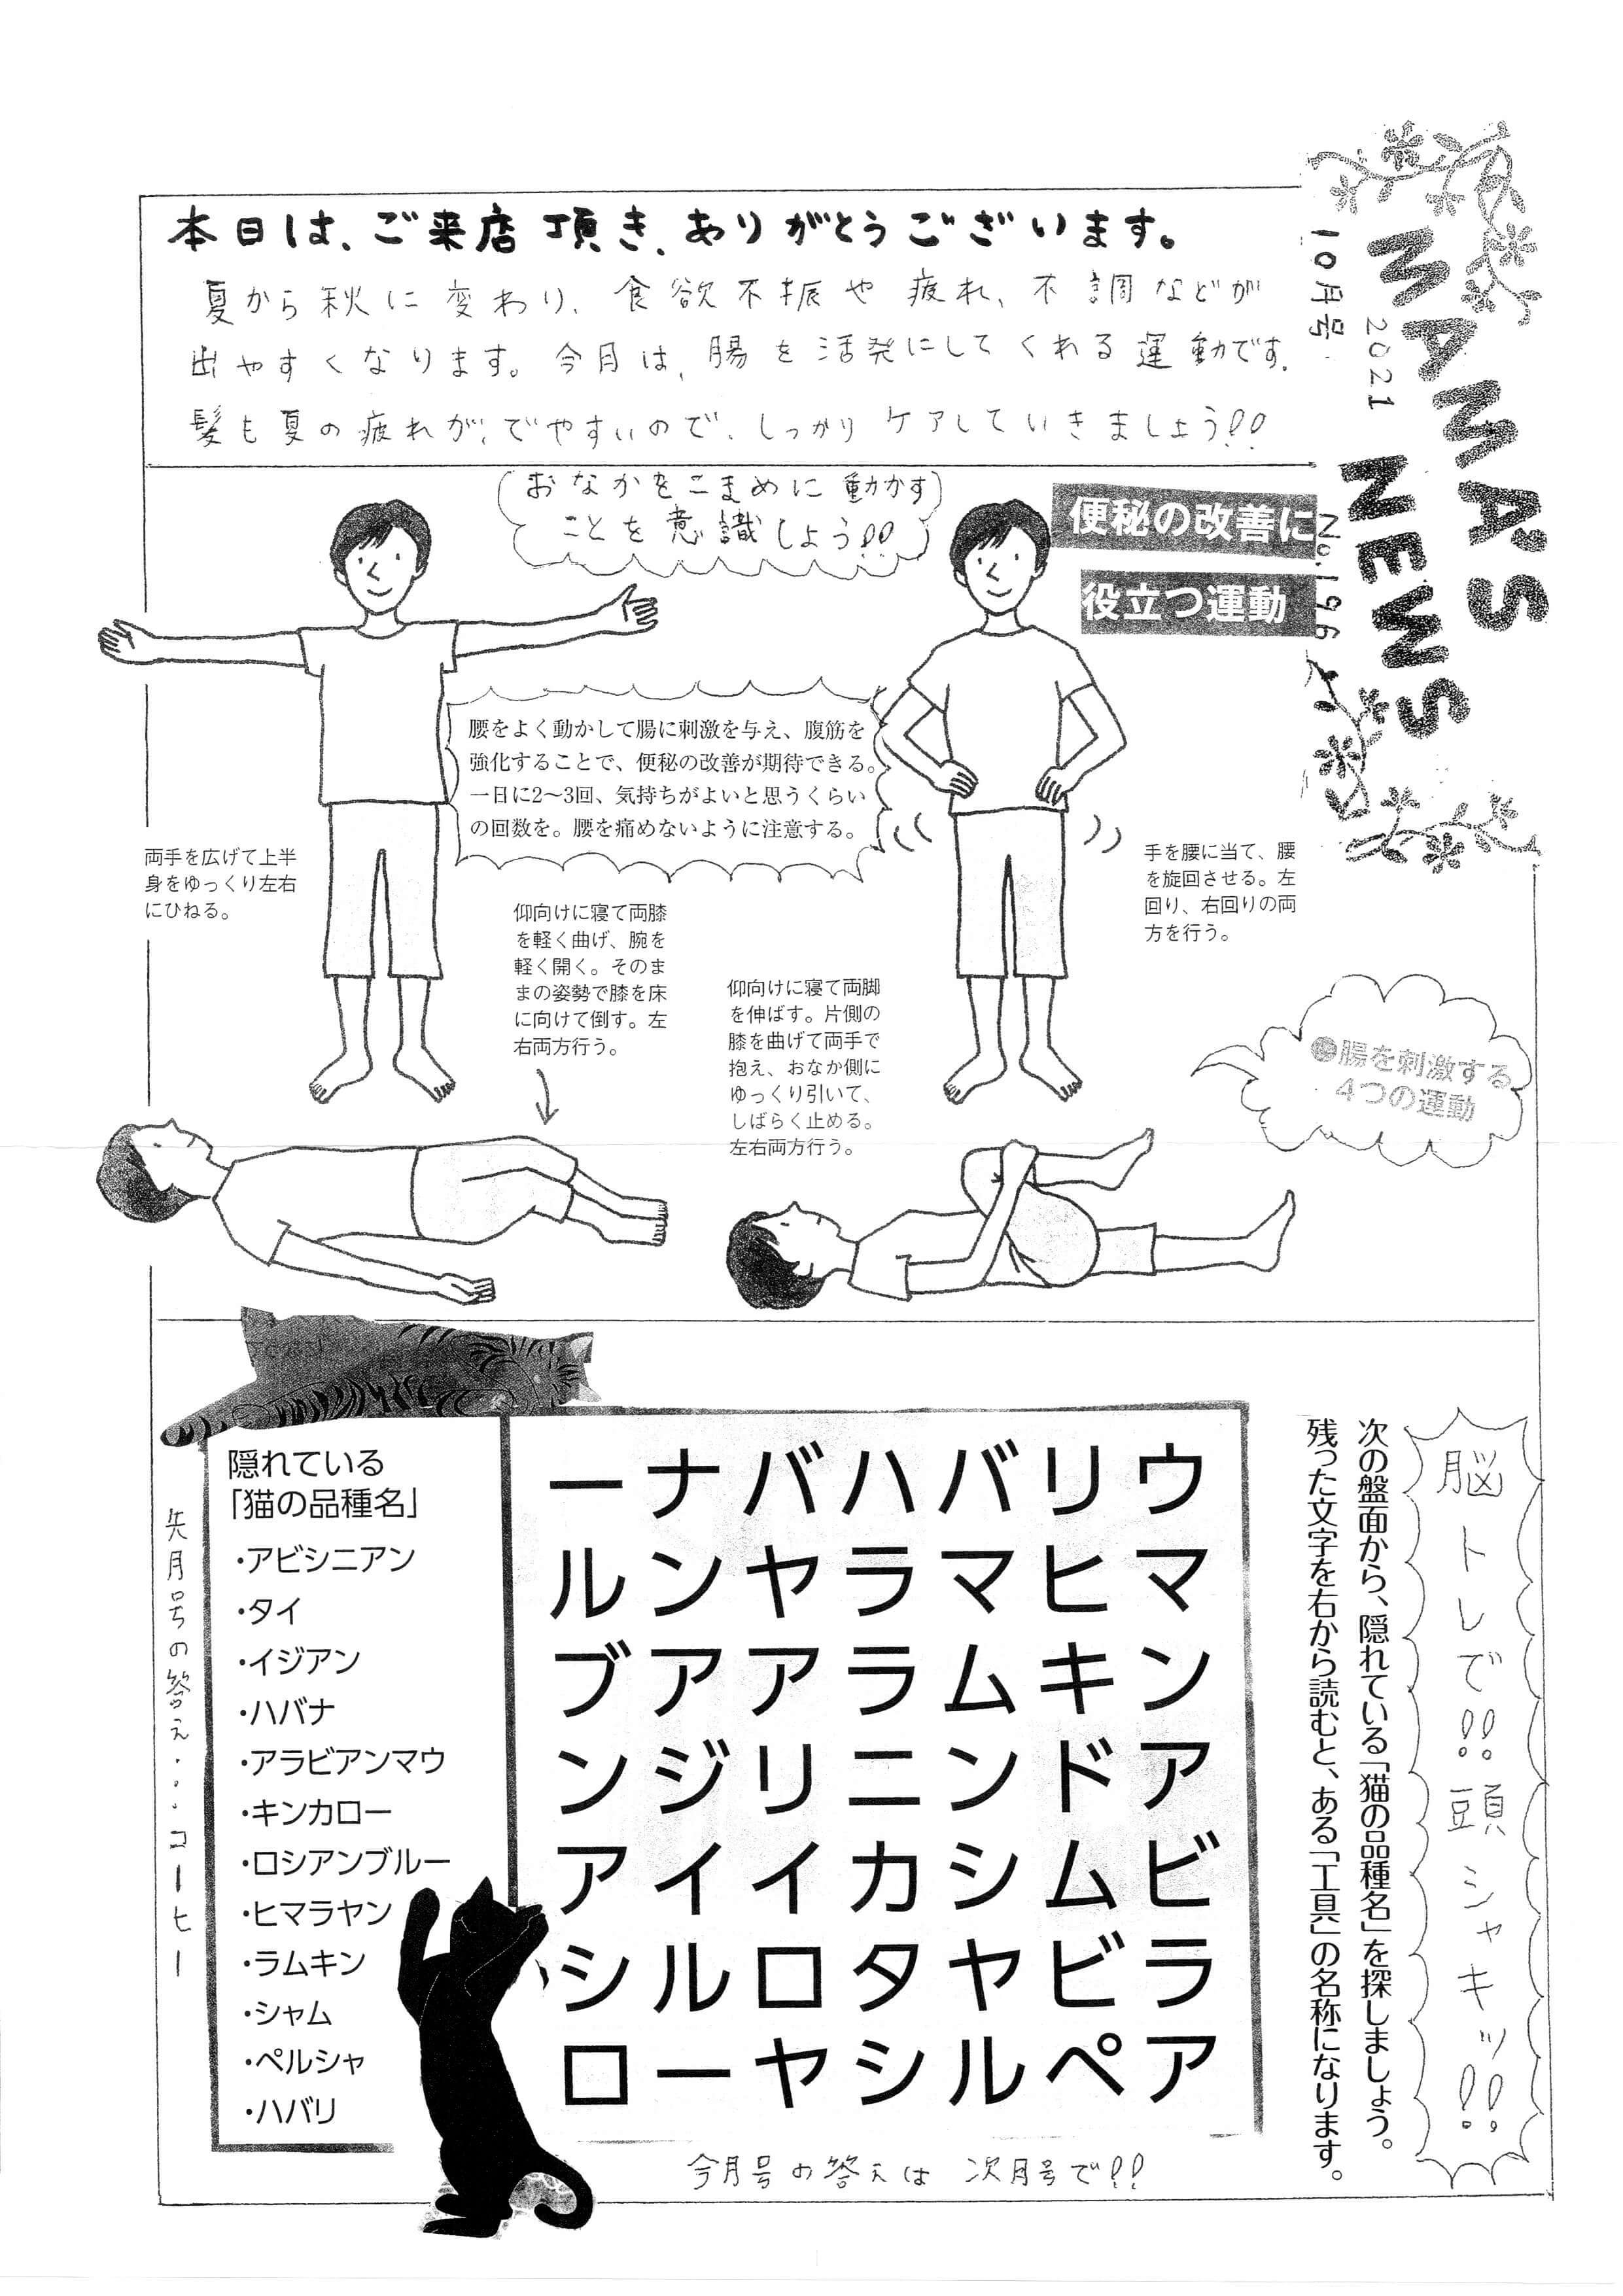 MAMA'S
NEWS
2021
10月号
No.196
本日は、ご来店頂き、ありがとうございます。
夏から秋に変わり、食欲不振や疲れ、不調などが
出やすくなります。今月は、腸を活発にしてくれる運動です。
髪も夏の疲れが、でやすいので、しっかりケアしていきましょう!!
便秘の改善に
役立つ運動
おなかをこまめに動かす
ことを意識しよう!!
腰をよく動かして腸に刺激を与え、腹筋を
強化することで、便秘の改善が期待できる。
一日に2〜3回、気持ちがよいと思うくらい
の回数を。腰を痛めないように注意する。
●腸を刺激する
4つの運動
手を腰に当て、腰
を旋回させる。左
回り、右回りの両
方を行う。
両手を広げて上半
身をゆっくり左右
にひねる。
仰向けに寝て両脚
を伸ばす。片側の
膝を曲げて両手で
抱え、おなか側に
ゆっくり引いて、
しばらく止める。
左右両方行う。
仰向けに寝て両膝
を軽く曲げ、腕を
軽く開く。そのま
まの姿勢で膝を床
に向けて倒す。左
右両方行う。
脳トレで!!頭シャキッ!!
次の盤面から、隠れている「猫の品種名」を探しましょう。
残った文字を右から読むと、ある「工具」の名称になります。
ーナバハバリウ
ルンヤラマヒマ
ブアアラムキン
ンジリニンドア
アイイカシムビ
シルロタヤビラ
ローヤシルペア
隠れている
「猫の品種名」
・アビシニアン
・タイ
・イジアン
・ハバナ
・アラビアンマウ
・キンカロー
・ロシアンブルー
・ヒマラヤン
・ラムキン
・シャム
・ペルシャ
・ハバリ
先月号の答え・・・コーヒー
今月号の答えは 次月号で!!